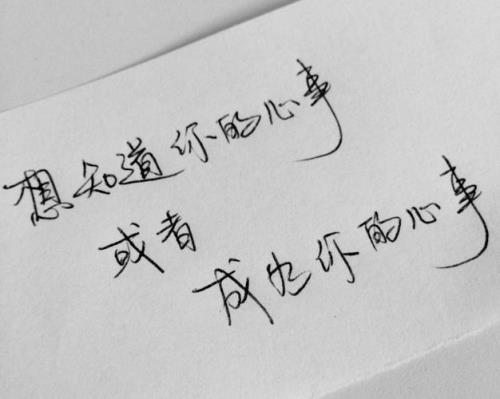 想知道你的心事
或者
成为你的心事